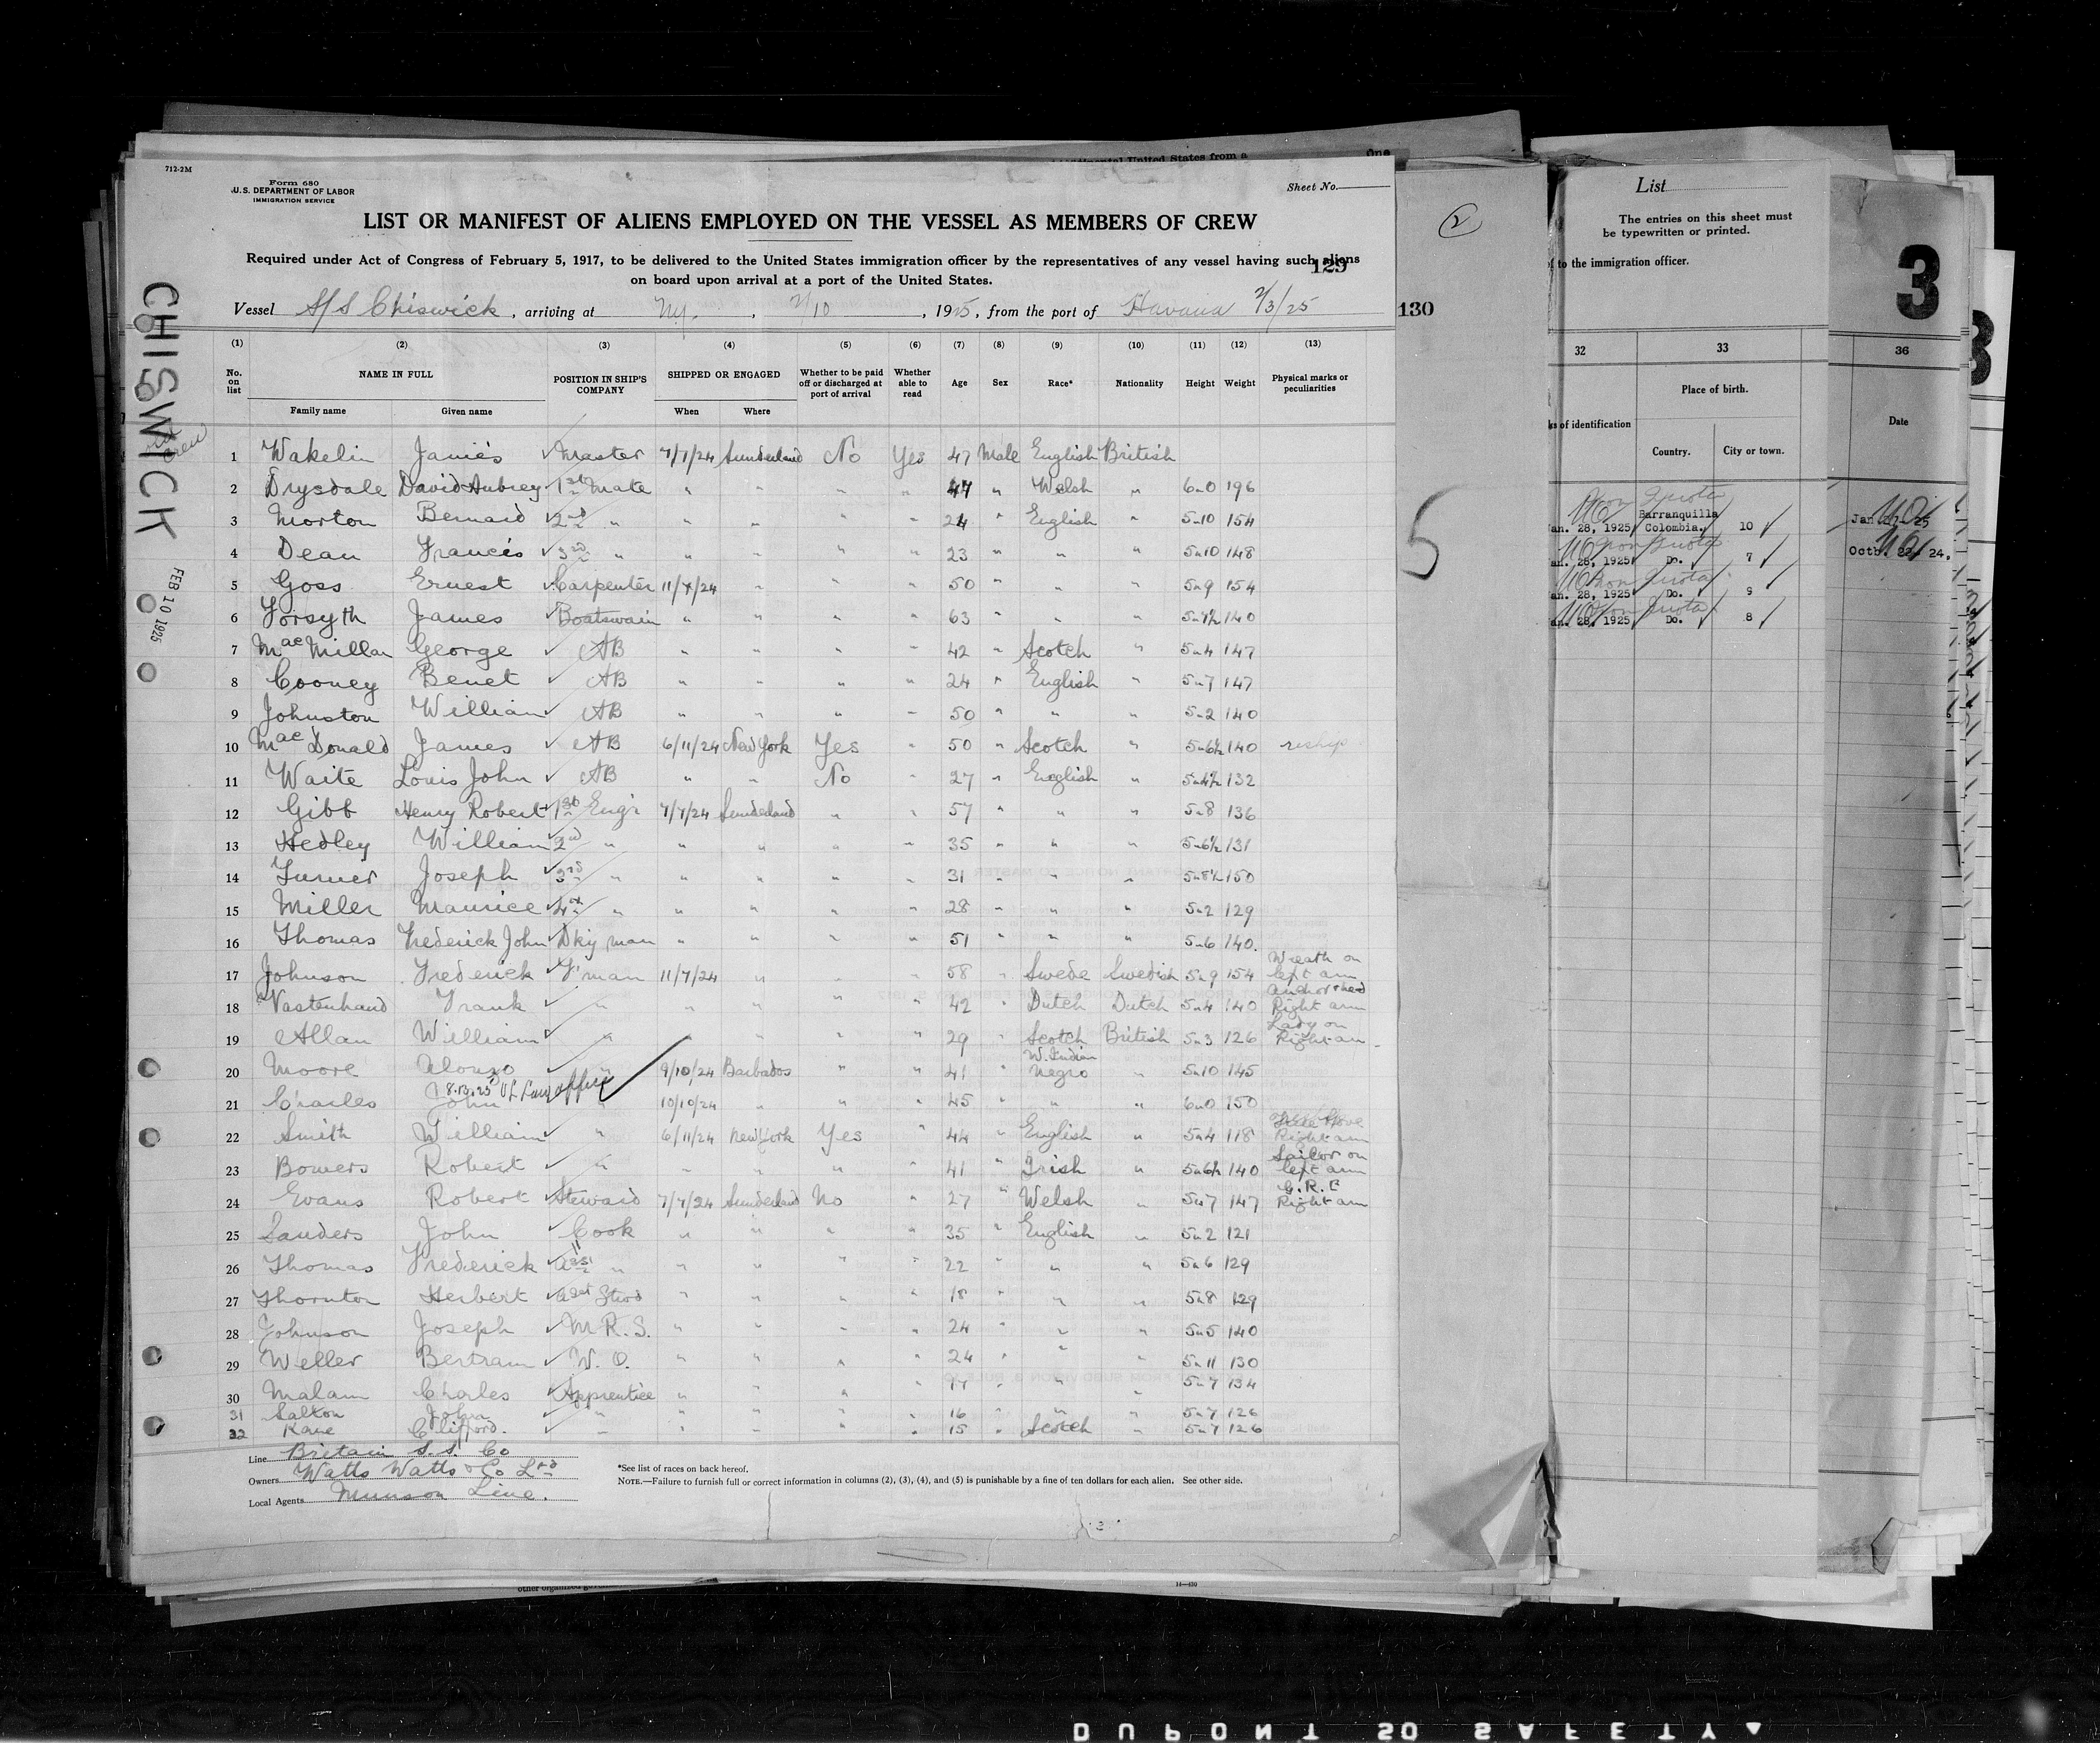 712-2M
Form 680
U.S. DEPARTMENT OF LABOR
IMMIGRATION SERVICE
Sheet No.
LIST OR MANIFEST OF ALIENS EMPLOYED ON THE VESSEL AS MEMBERS OF CREW
Required under Act of Congress of February 5, 1917, to be delivered to the United States immigration officer by the representatives of any vessel having such aliens
on board upon arrival at a port of the United States.
129
Vessel S/S Chiswick, arriving at N.Y., 2/10, 1925, from the port of Havana 2/3/25
130
CHISWICK
FEB 10 1925
(1) (2) (3) (4) (5) (6) (7) (8) (9) (10) (11) (12) (13)
No. on list NAME IN FULL POSITION IN SHIP'S COMPANY SHIPPED OR ENGAGED Whether to be paid off or discharged at port of arrival Whether able to read Age Sex Race* Nationality Height Weight Physical marks or peculiarities
Family name Given name When Where
1 Wakelin James Master 7/7/24 Sunderland No Yes 47 Male English British
2 Drysdale David Aubrey 1st Mate " " " " 47 " Welsh " 6-0 196
3 Morton Bernard 2nd " " " " " 24 " English " 5-10 154
4 Dean Francis 3rd " " " " " 23 " " " 5-10 148
5 Goss Ernest Carpenter 11/7/24 " " " 50 " " " 5-9 154
6 Forsyth James Boatswain " " " " 63 " " " 5-7½ 140
7 MacMillan George AB " " " " 42 " Scotch " 5-4 147
8 Cooney Benet AB " " " " 24 " English " 5-7 147
9 Johnston William AB " " " " 50 " " " 5-2 140
10 MacDonald James AB 6/11/24 New York Yes " 50 " Scotch " 5-6½ 140 reship
11 Waite Louis John AB " " No " 27 " English " 5-4½ 132
12 Gibb Henry Robert 1st Engr 7/7/24 Sunderland " " 57 " " " 5-8 136
13 Hedley William 2nd " " " " " 35 " " " 5-6½ 131
14 Turner Joseph 3rd " " " " " 31 " " " 5-8½ 150
15 Miller Maurice 4th " " " " " 28 " " " 5-2 129
16 Thomas Frederick John Dky man " " " " 51 " " " 5-6 140.
17 Johnson Frederick F'man 11/7/24 " " " 58 " Swede Swedish 5-9 154 Wreath on left arm
18 Vastenhaud Frank " " " " " 42 " Dutch Dutch 5-4 140 anchor & head Right arm
19 Allan William " " " " " 29 " Scotch British 5-3 126 Lady on Right arm
20 Moore Alonzo " 9/10/24 Barbados " " 41 " W. Indian Negro " 5-10 145
21 Charles John " 10/10/24 " " " 45 " " " 6-0 150
22 Smith William " 6/11/24 New York Yes " 44 " English " 5-4 118 Right arm
23 Bowers Robert " " " " " 41 " Irish " 5-6½ 140 Sailor on left arm
24 Evans Robert Steward 7/7/24 Sunderland No " 27 " Welsh " 5-7 147 G.R.E Right arm
25 Sanders John Cook " " " " 35 " English " 5-2 121
26 Thomas Frederick asst " " " " " 22 " " " 5-6 129
27 Thornton Herbert asst Stwd " " " " 18 " " " 5-8 129
28 Johnson Joseph M.R.S. " " " " 24 " " " 5-5 140
29 Weller Bertram W. O. " " " " 24 " " " 5-11 130
30 Malam Charles Apprentice " " " " 17 " " " 5-7 134
31 Salton John " " " " " 16 " " " 5-7 126
32 Kane Clifford. " " " " " 15 " Scotch " 5-7 126
Line Britain S.S. Co
Owners Watts Watts & Co Ltd
Local Agents Munson Line.
*See list of races on back hereof.
NOTE.—Failure to furnish full or correct information in columns (2), (3), (4), and (5) is punishable by a fine of ten dollars for each alien. See other side.
14—430
2
5
List
The entries on this sheet must
be typewritten or printed.
to the immigration officer.
32 33
Place of birth.
of identification
Country. City or town.
an. 28, 1925 Barranquilla Colombia. 10
an. 28, 1925 Do. 7
an. 28, 1925 Do. 9
an. 28, 1925 Do. 8
3
36
Date
Jan 27- 25
Octb. 22 24.
DUPONT 50 SAFETY